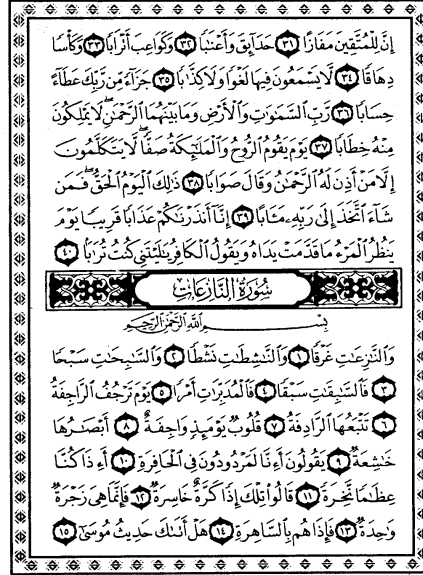 إِنَّ لِلْمُتَّقِينَ مَفَازًا ٣١ حَدَآئِقَ وَأَعْنَٰبًا ٣٢ وَكَوَاعِبَ أَتْرَابًا ٣٣ وَكَأْسًا
دِهَاقًا ٣٤ لَّا يَسْمَعُونَ فِيهَا لَغْوًا وَلَا كِذَّٰبًا ٣٥ جَزَآءً مِّن رَّبِّكَ عَطَآءً
حِسَابًا ٣٦ رَّبِّ ٱلسَّمَٰوَٰتِ وَٱلْأَرْضِ وَمَا بَيْنَهُمَا ٱلرَّحْمَٰنِ ۖ لَا يَمْلِكُونَ
مِنْهُ خِطَابًا ٣٧ يَوْمَ يَقُومُ ٱلرُّوحُ وَٱلْمَلَٰٓئِكَةُ صَفًّا ۖ لَّا يَتَكَلَّمُونَ
إِلَّا مَنْ أَذِنَ لَهُ ٱلرَّحْمَٰنُ وَقَالَ صَوَابًا ٣٨ ذَٰلِكَ ٱلْيَوْمُ ٱلْحَقُّ ۖ فَمَن
شَآءَ ٱتَّخَذَ إِلَىٰ رَبِّهِۦ مَـَٔابًا ٣٩ إِنَّآ أَنذَرْنَٰكُمْ عَذَابًا قَرِيبًا يَوْمَ
يَنظُرُ ٱلْمَرْءُ مَا قَدَّمَتْ يَدَاهُ وَيَقُولُ ٱلْكَافِرُ يَٰلَيْتَنِى كُنتُ تُرَٰبًا ٤٠
سُورَةُ النَّازِعَاتِ
بِسْمِ اللَّهِ الرَّحْمَٰنِ الرَّحِيمِ
وَٱلنَّٰزِعَٰتِ غَرْقًا ١ وَٱلنَّٰشِطَٰتِ نَشْطًا ٢ وَٱلسَّٰبِحَٰتِ سَبْحًا
٣ فَٱلسَّٰبِقَٰتِ سَبْقًا ٤ فَٱلْمُدَبِّرَٰتِ أَمْرًا ٥ يَوْمَ تَرْجُفُ ٱلرَّاجِفَةُ
٦ تَتْبَعُهَا ٱلرَّادِفَةُ ٧ قُلُوبٌ يَوْمَئِذٍ وَاجِفَةٌ ٨ أَبْصَٰرُهَا
خَٰشِعَةٌ ٩ يَقُولُونَ أَءِنَّا لَمَرْدُودُونَ فِى ٱلْحَافِرَةِ ١٠ أَءِذَا كُنَّا
عِظَٰمًا نَّخِرَةً ١١ قَالُوا۟ تِلْكَ إِذًا كَرَّةٌ خَاسِرَةٌ ١٢ فَإِنَّمَا هِىَ زَجْرَةٌ
وَٰحِدَةٌ ١٣ فَإِذَا هُم بِٱلسَّاهِرَةِ ١٤ هَلْ أَتَىٰكَ حَدِيثُ مُوسَىٰٓ ١٥